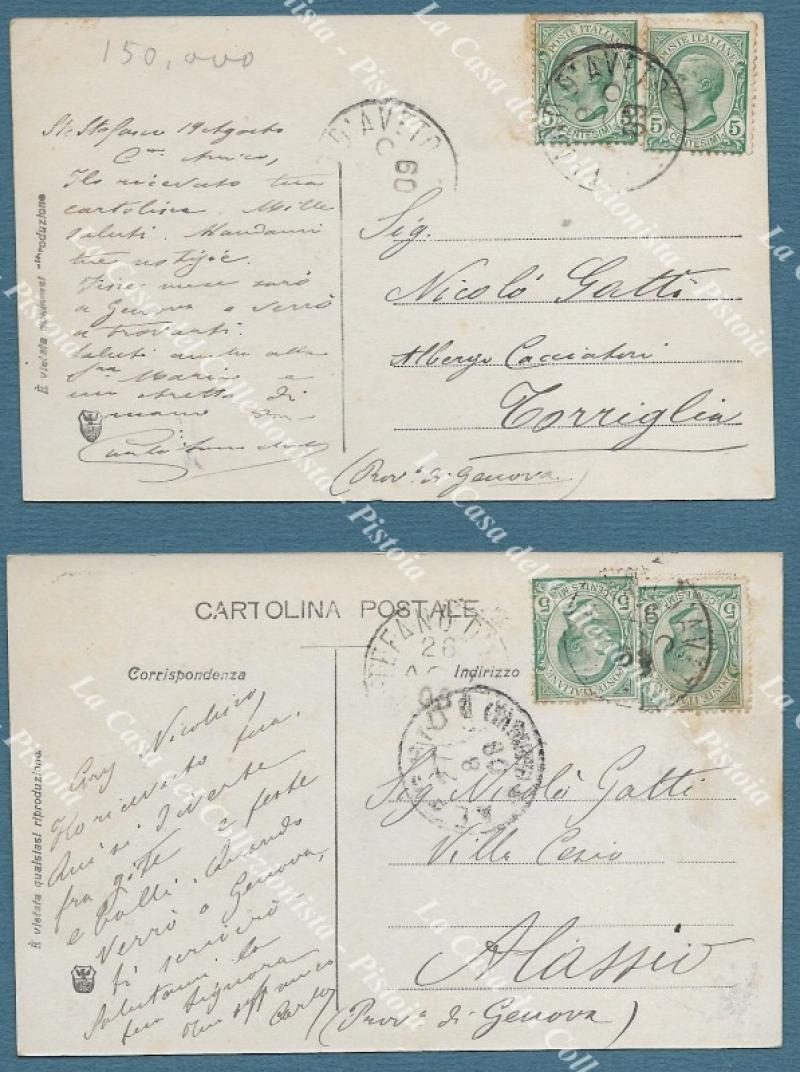 150,000
POSTE ITALIANE
5 CENTESIMI 5
POSTE ITALIANE
5 CENTESIMI 5
D'AVETO
09
D'AVETO
09
St. Stefano 19 Agosto
C. Amico,
Ho ricevuto tua
cartolina. Mille
saluti. Mandami
tue notizie.
Fine mese sarò
a Genova e verrò
a trovarti.
Saluti anche alla
Sra Maria e
una stretta di
mano
È vietata qualsiasi riproduzione
Sig.
Nicolò Gatti
Albergo Cacciatori
Torriglia
(Prov.a di Genova)
CARTOLINA POSTALE
Corrispondenza
Indirizzo
STEFANO D'AV
26
POSTE ITALIANE
5 CENTESIMI 5
POSTE ITALIANE
5 CENTESIMI 5
Nicolino,
Ho ricevuto tua.
Qui si diverte
fra gite e feste
e balli. Quando
verrò a Genova,
ti scriverò.
Salutami la
tua Signora
amico
Carlo
È vietata qualsiasi riproduzione
Sig Nicolò Gatti
Villa
Alassio
(Prov.a di Genova)
La Casa del Collezionista - Pistoia